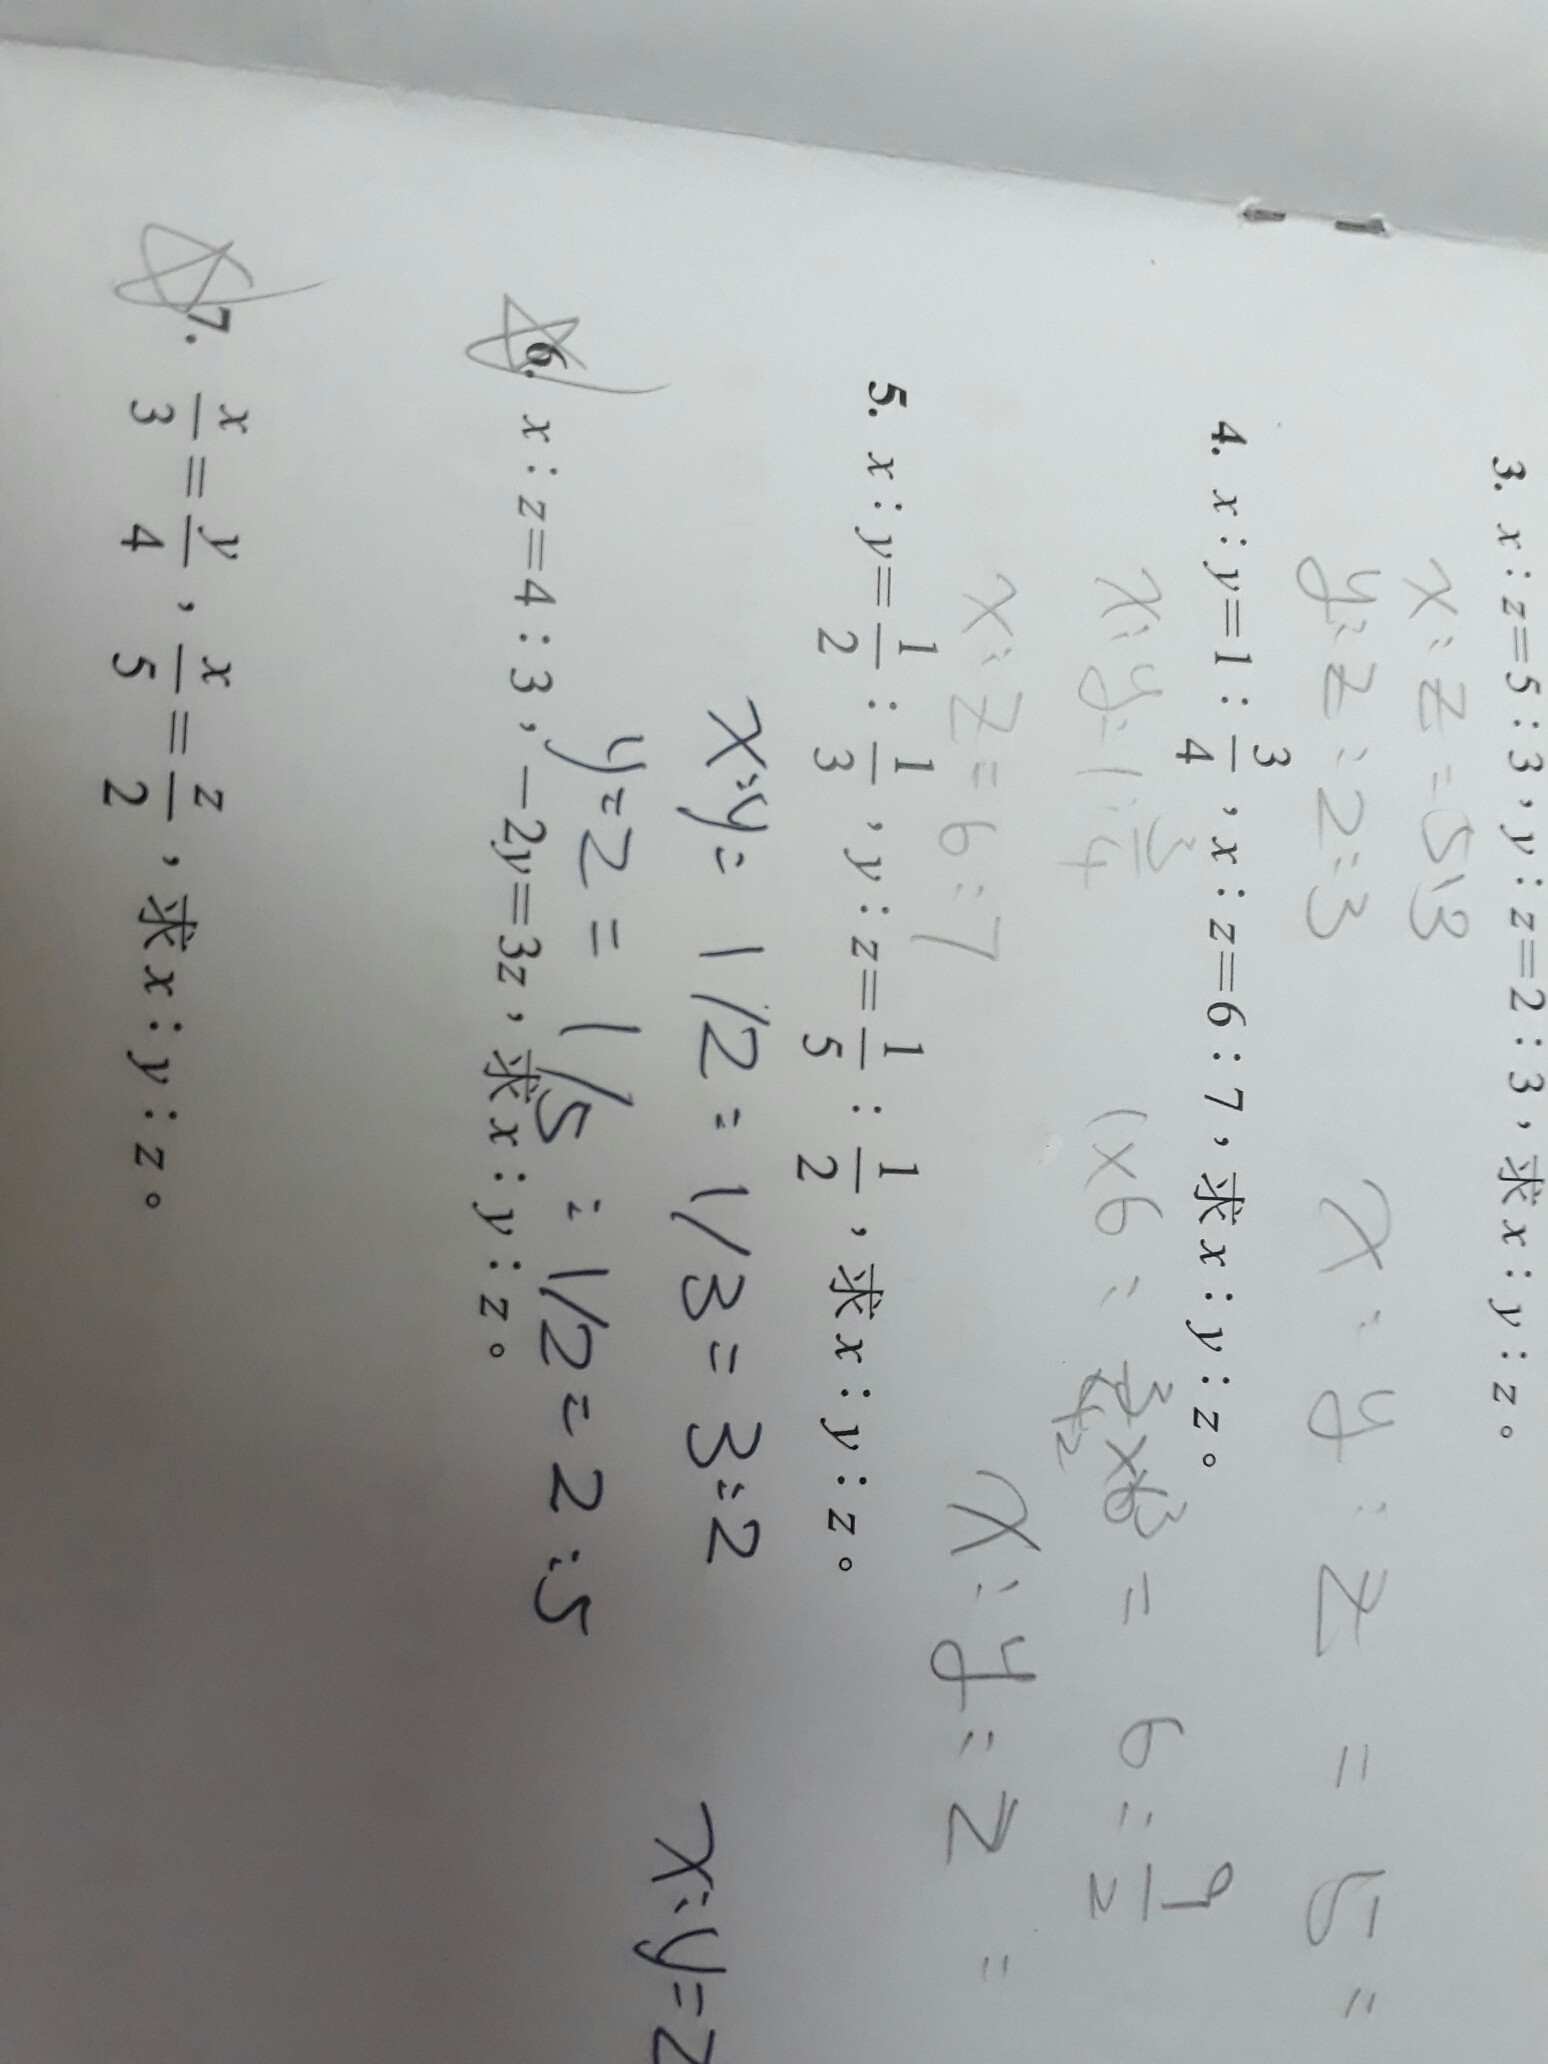 3. x:z=5:3,y:z=2:3,求x:y:z。
x:z=5:3
y:z:2:3
x:y:z=5:
4. x:y=1:3/4,x:z=6:7,求x:y:z。
x:y=1:3/4
(x6:
=6:9/2
x:z=6:7
x:y:z=
5. x:y=1/2:1/3,y:z=1/5:1/2,求x:y:z。
x:y=1/2:1/3=3:2
y=z=1/5:1/2=2:5
x:y=z
6. x:z=4:3,-2y=3z,求x:y:z。
7. x/3=y/4,x/5=z/2,求x:y:z。